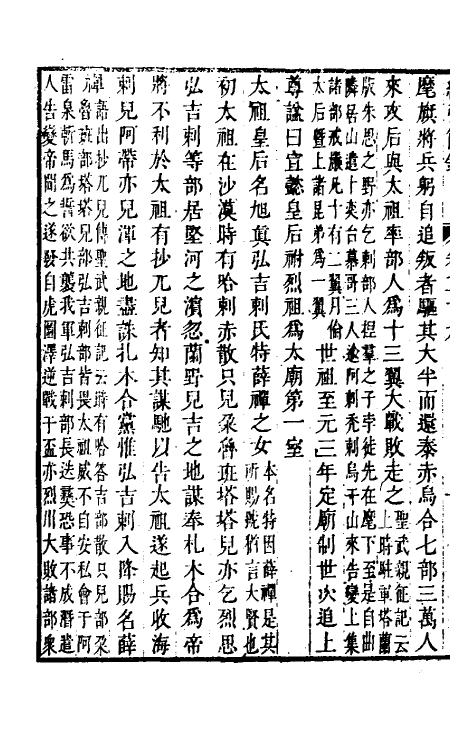 麾旗將兵躬自追叛者驅其大半而還泰赤烏合七部三萬人
來攻后與太祖率部人爲十三翼大戰敗走之聖武親征記云
上時駐軍塔蘭
版朱思之野亦乞剌部人捏羣之子孛徒先在麾下至是自曲
隣居山遣卜奕台慕哥三人逾阿剌禿剌烏于山來告變上集
諸部戒嚴凡十有二翼月倫
太后暨上諸昆弟爲一翼世祖至元三年定廟制世次追上
尊諡曰宣懿皇后祔烈祖爲太廟第一室
太祖皇后名旭眞弘吉剌氏特薛禪之女本名特因薛禪是其
所賜號猶言大賢也
初太祖在沙漠時有哈剌赤散只兒朶魯班塔塔兒亦乞烈思
弘吉剌等部居堅河之濱忽蘭野兒吉之地謀奉札木合爲帝
將不利於太祖有抄兀兒者知其謀馳以告太祖遂起兵收海
剌兒阿帶亦兒渾之地盡誅札木合黨惟弘吉剌入降賜名薛
禪語出抄兀兒傳聖武親征記云時有哈答吉部散只兒部朶
魯班部塔塔兒部弘吉剌部皆畏太祖威不自安私會于阿
雷泉斬馬爲誓欲共襲我軍弘吉剌部長迭夷恐事不成潛遣
人告變帝聞之遂發自虎圖澤逆戰于盃亦烈川大敗諸部衆